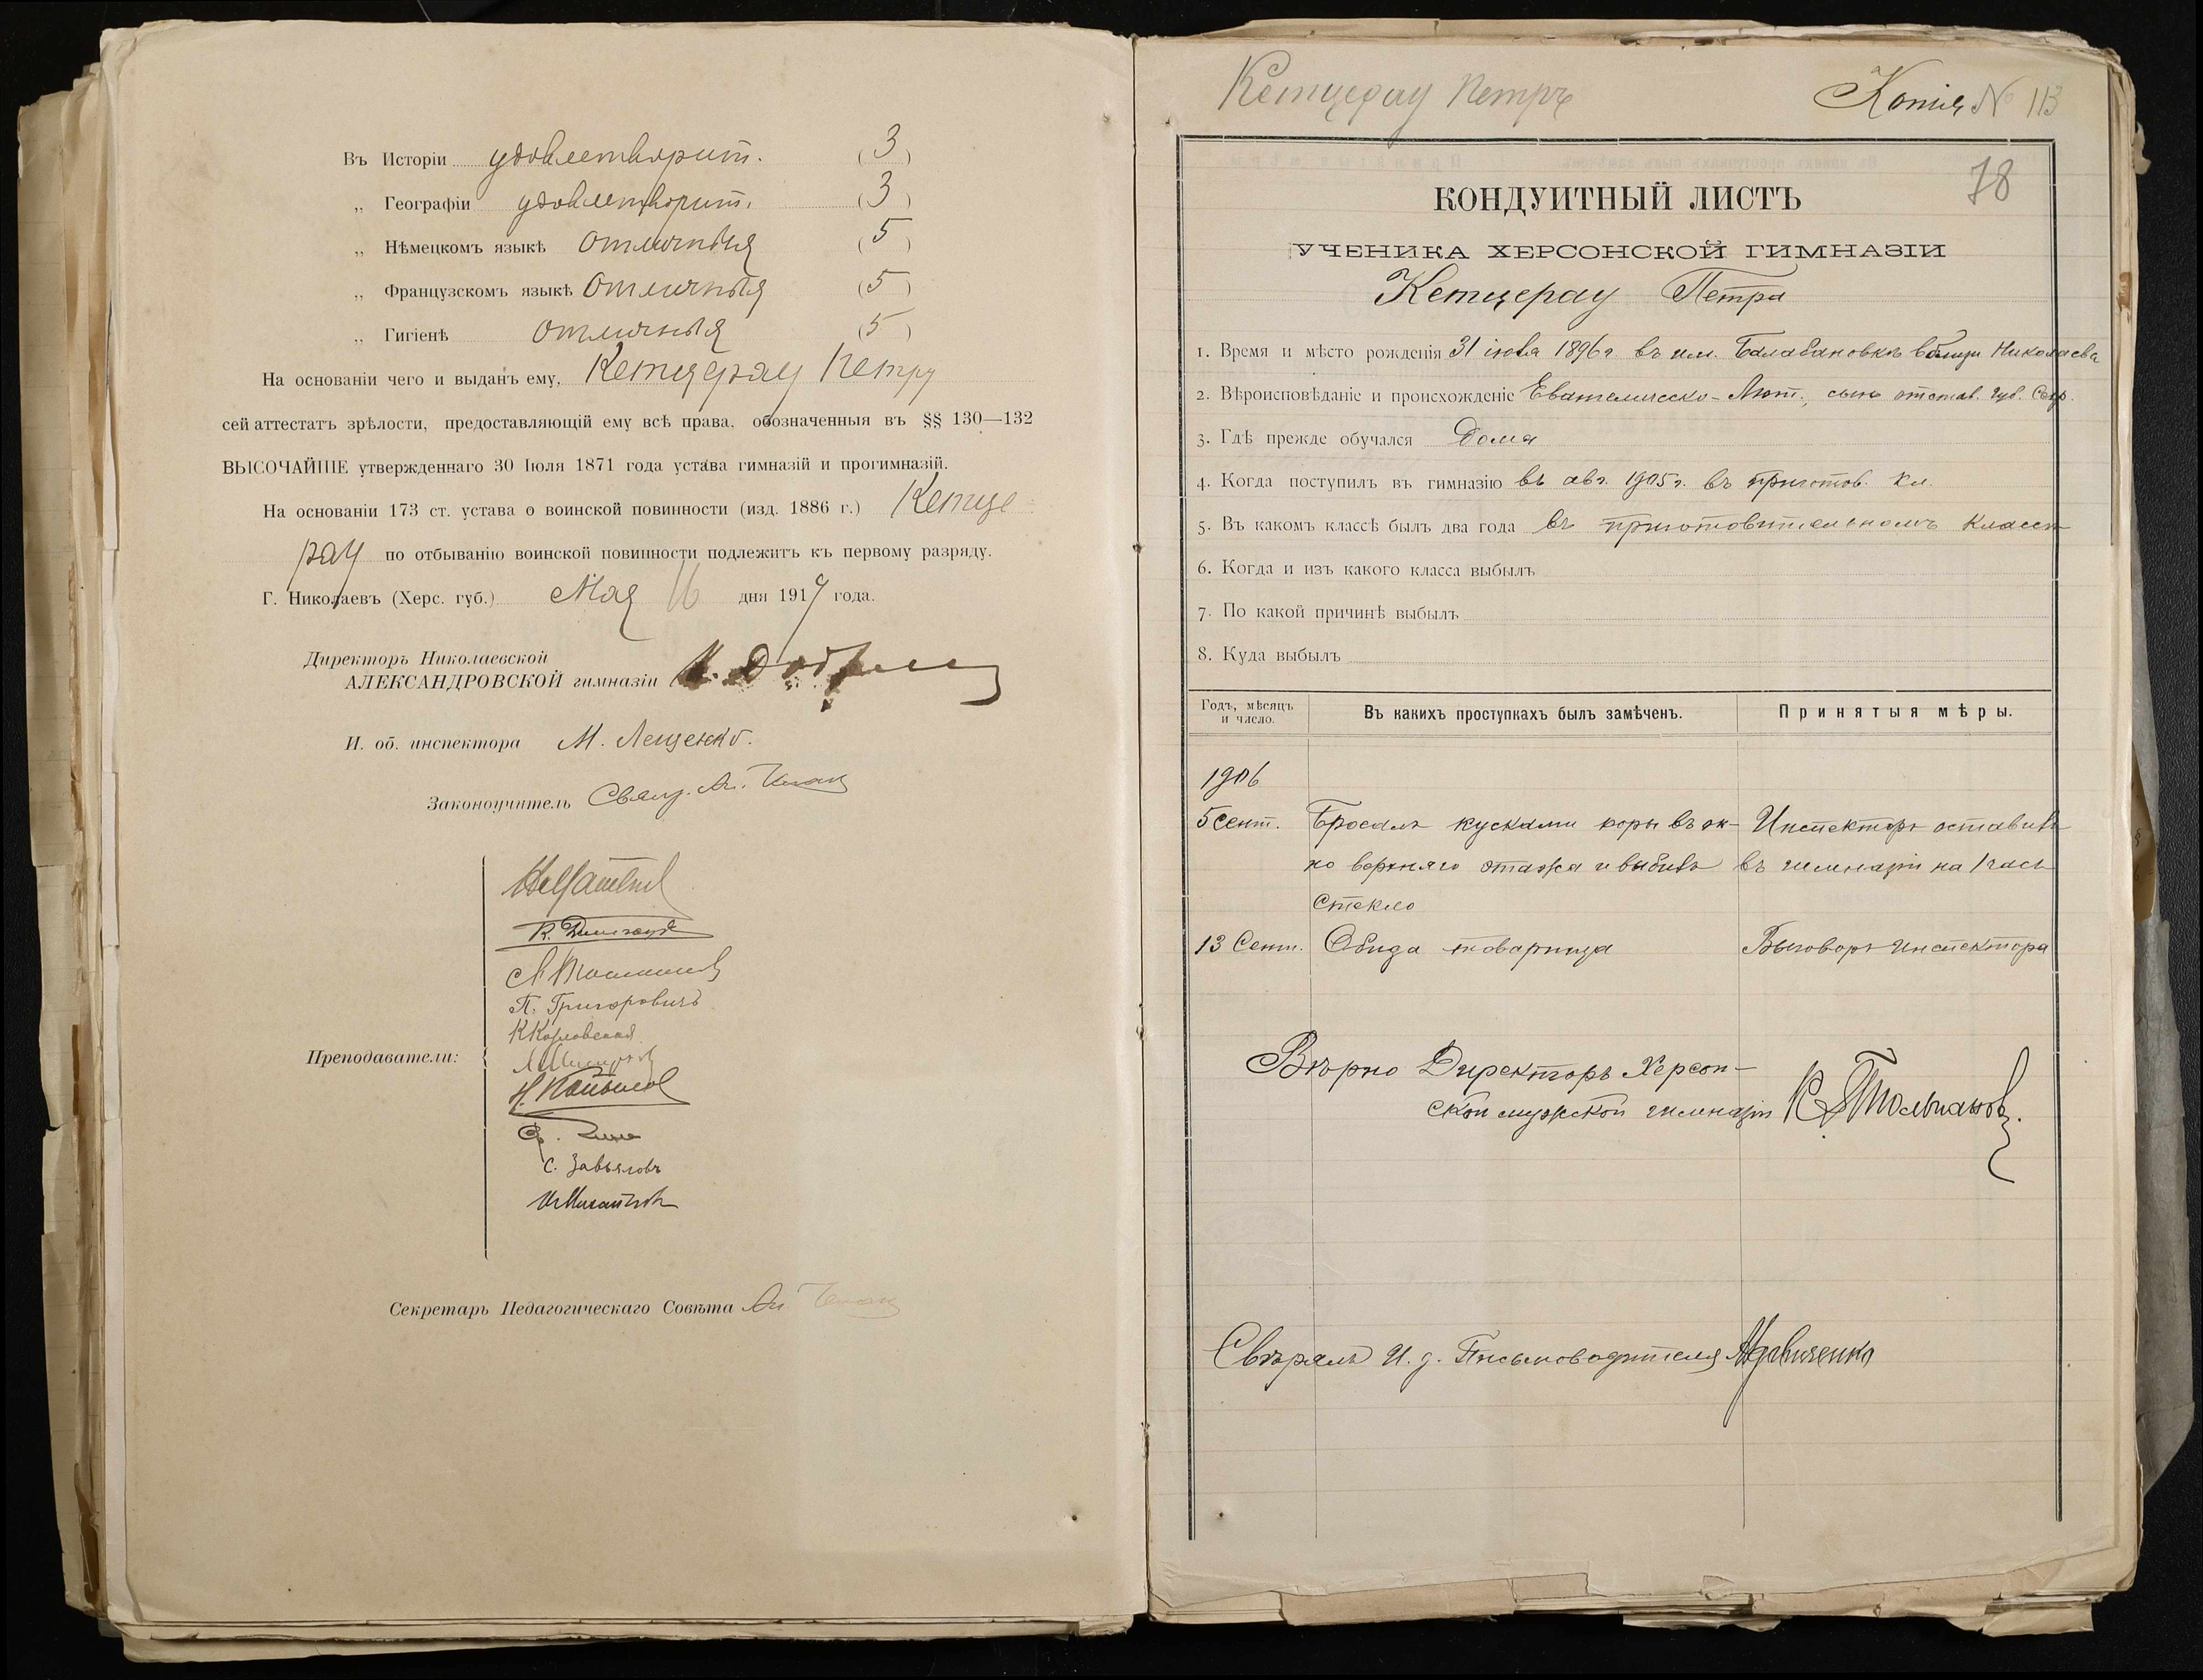 Въ Исторіи удовлетворит. (3)
„ Географіи удовлетворит. (3)
„ Нѣмецкомъ языкѣ отличныя (5)
„ Французскомъ языкѣ отличныя (5)
„ Гигіенѣ отличныя (5)
На основаніи чего и выданъ ему, Кетцерау Петру
сей аттестатъ зрѣлости, предоставляющій ему всѣ права, обозначенныя въ §§ 130—132
ВЫСОЧАЙШЕ утвержденнаго 30 Іюля 1871 года устава гимназій и прогимназій.
На основаніи 173 ст. устава о воинской повинности (изд. 1886 г.) Кетце
рау по отбыванію воинской повинности подлежитъ къ первому разряду.
Г. Николаевъ (Херс. губ.) Мая 16 дня 191 года.
Директоръ Николаевской
АЛЕКСАНДРОВСКОЙ гимназіи
И. об. инспектора М. Лещенко.
Законоучитель Свящ. Ал.
П. Григоровичъ
К Карловская
Преподаватели:
С. Завьяловъ
Секретарь Педагогическаго Совѣта Ал.
Кетцерау Петръ
Копія № 113
78
КОНДУИТНЫЙ ЛИСТЪ
УЧЕНИКА ХЕРСОНСКОЙ ГИМНАЗІИ
Кетцерау Петра
1. Время и мѣсто рожденія 31 іюля 1896 г. въ им. Балабановкѣ вблизи Николаева
2. Вѣроисповѣданіе и происхожденіе Евангелическо-Лют., сынъ отстав. губ. Секр.
3. Гдѣ прежде обучался Дома
4. Когда поступилъ въ гимназію въ авг. 1905 г. въ приготов. кл.
5. Въ какомъ классѣ былъ два года въ приготовительномъ классѣ
6. Когда и изъ какого класса выбылъ
7. По какой причинѣ выбылъ
8. Куда выбылъ
Годъ, мѣсяцъ и число.
Въ какихъ проступкахъ былъ замѣченъ.
Принятыя мѣры.
1906
5 Сент. Бросалъ кусками коры въ ок- Инспекторъ оставилъ
но верхняго этажа и выбилъ въ гимназіи на 1 часъ
стекло
13 Сент. Обида товарища Выговоръ инспектора
Вѣрно Директоръ Херсон-
ской мужской гимназіи К Тюльпановъ.
Свѣрялъ И. д. Письмоводителя